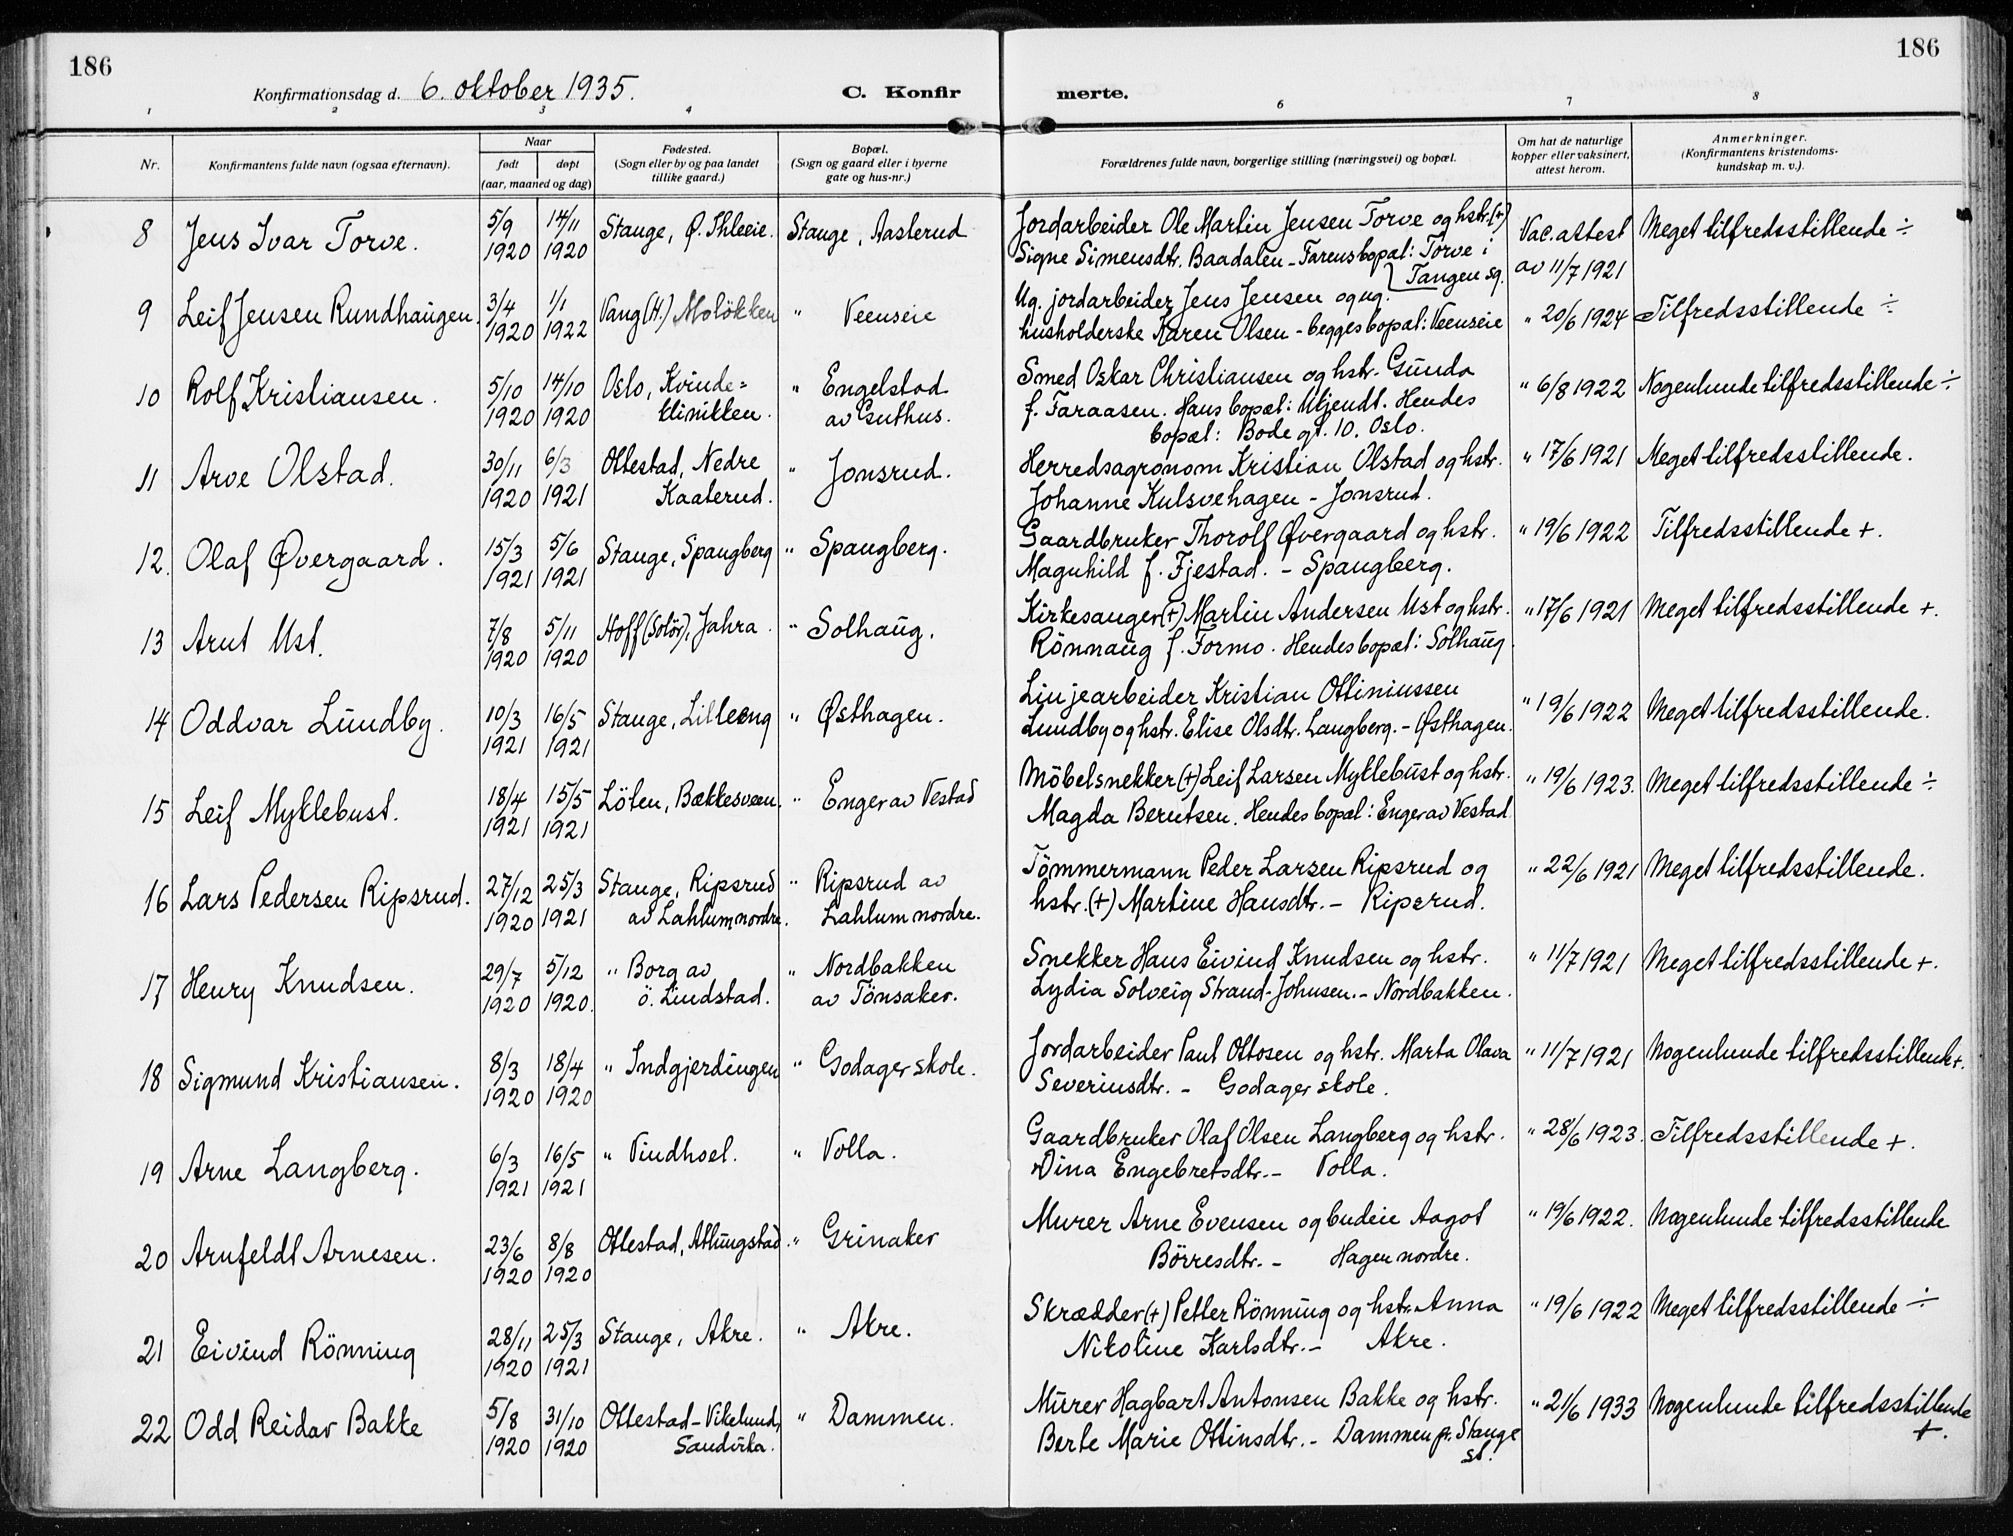 186
186
Konfirmationsdag d. 6. oktober 1935.
C. Konfirmerte.
1 2 3 4 6 7 8
Nr.
Konfirmantens fulde navn (ogsaa efternavn).
Naar
født døpt
(aar, maaned og dag)
Fødested.
(Sogn eller by og paa landet
tillike gaard.)
Bopæl.
(Sogn og gaard eller i byerne
gate og hus-nr.)
Forældrenes fulde navn, borgerlige stilling (næringsvei) og bopæl.
Om hat de naturlige
kopper eller vaksinert,
attest herom.
Anmerkninger.
(Konfirmantens kristendoms-
kundskap m. v.).
8 Jens Ivar Torve. 5/9 1920 14/11 1920 Stange, Ø. Thleeie. Stange, Aasterud
Jordarbeider Ole Martin Jensen Torve og hstr. (+)
Signe Simensdtr. Baadalen - Farens bopæl: Torve i
Tangen sg.
Vac. attest
av 11/7 1921
Meget tilfredsstillende ÷
9 Leif Jensen Rundhaugen. 3/4 1920 1/1 1922 Vang (H.) Moløkken " Veenseie
Ug. jordarbeider Jens Jensen og ug.
husholderske Karen Olsen - begges bopæl: Veenseie
" 20/6 1924 Tilfredsstillende ÷
10 Rolf Kristiansen. 5/10 1920 14/10 1920 Oslo, Kvinde=
klinikken. " Engelstad
av Guthus.
Smed Oskar Christiansen og hstr. Gunda
f. Faraasen. Hans bopæl: Ukjendt. Hendes
bopæl: Bode gt. 10. Oslo.
" 6/8 1922 Nogenlunde tilfredsstillende ÷
11 Arve Olstad. 30/11 1920 6/3 1921 Ottestad, Nedre
Kaaterud. " Jonsrud.
Herredsagronom Kristian Olstad og hstr.
Johanne Kulsvehagen - Jonsrud.
" 17/6 1921 Meget tilfredsstillende.
12. Olaf Øvergaard. 15/3 1921 5/6 1921 Stange, Spangberg " Spangberg.
Gaardbruker Thorolf Øvergaard og hstr.
Magnhild f. Fjestad. - Spangberg.
" 19/6 1922 Tilfredsstillende +.
13 Arnt Ust. 7/8 1920 5/11 1920 Hoff (Solør), Jahra. " Solhaug.
Kirkesanger (+) Martin Andersen Ust og hstr.
Rönnaug f. Formo. Hendes bopæl: Solhaug
" 17/6 1921 Meget tilfredsstillende +.
14 Oddvar Lundby. 10/3 1921 16/5 1921 Stange, Lilleeng " Østhagen.
Linjearbeider Kristian Ottiniussen
Lundby og hstr. Elise Olsdtr. Langberg. - Østhagen.
" 19/6 1922 Meget tilfredsstillende.
15 Leif Myklebust. 18/4 1921 15/5 1921 Löten, Bækkesveen. " Enger av Vestad
Möbelsnekker (+) Leif Larsen Myklebust og hstr.
Magda Berntsen. Hendes bopæl: Enger av Vestad
" 19/6 1923. Meget tilfredsstillende ÷
16 Lars Pedersen Ripsrud. 27/12 1920 25/3 1921 Stange, Ripsrud
av Lahlum nordre. " Ripsrud av
Lahlum nordre.
Tömmermann Peder Larsen Ripsrud og
hstr. (+) Martine Hansdtr. - Ripsrud.
" 22/6 1921 Meget tilfredsstillende.
17 Henry Knudsen. 29/7 1920 5/12 1920. " Borg av
ö. Lindstad. " Nordbakken
av Tönsaker.
Snekker Hans Eivind Knudsen og hstr.
Lydia Solveig Strand-Johnsen. - Nordbakken.
" 11/7 1921 Meget tilfredsstillende +.
18 Sigmund Kristiansen. 8/3 1920 18/4 1920 " Indgjerdingen " Godager skole.
Jordarbeider Paul Ottosen og hstr. Marta Olava
Severinsdtr. - Godager skole.
" 11/7 1921 Nogenlunde tilfredsstillende +.
19 Arne Langberg. 6/3 1921 16/5 1921 " Vindhoel. " Volla.
Gaardbruker Olaf Olsen Langberg og hstr.
Dina Engebretsdtr. - Volla.
" 28/6 1923. Tilfredsstillende +.
20 Arnfeldt Arnesen. 23/6 1920 8/8 1920 Ottestad, Atlungstad. " Grinaker
Murer Arne Evensen og budeie Aagot
Börresdtr. - Hagen nordre.
" 19/6 1922. Nogenlunde tilfredsstillende
21 Eivind Rönning 28/11 1920 25/3 1921 Stange, Akre. " Akre.
Skrædder (+) Petter Rönning og hstr. Anna
Nikoline Karlsdtr. - Akre.
" 19/6 1922 Meget tilfredsstillende ÷
22 Odd Reidar Bakke 5/8 1920 31/10 1920 Ottestad - Vikelund,
Sandvika. " Dammen.
Murer Hagbart Antonsen Bakke og hstr.
Berte Marie Ottinsdtr. - Dammen pr. Stange
st.
" 21/6 1933 Nogenlunde tilfredsstillende
+.